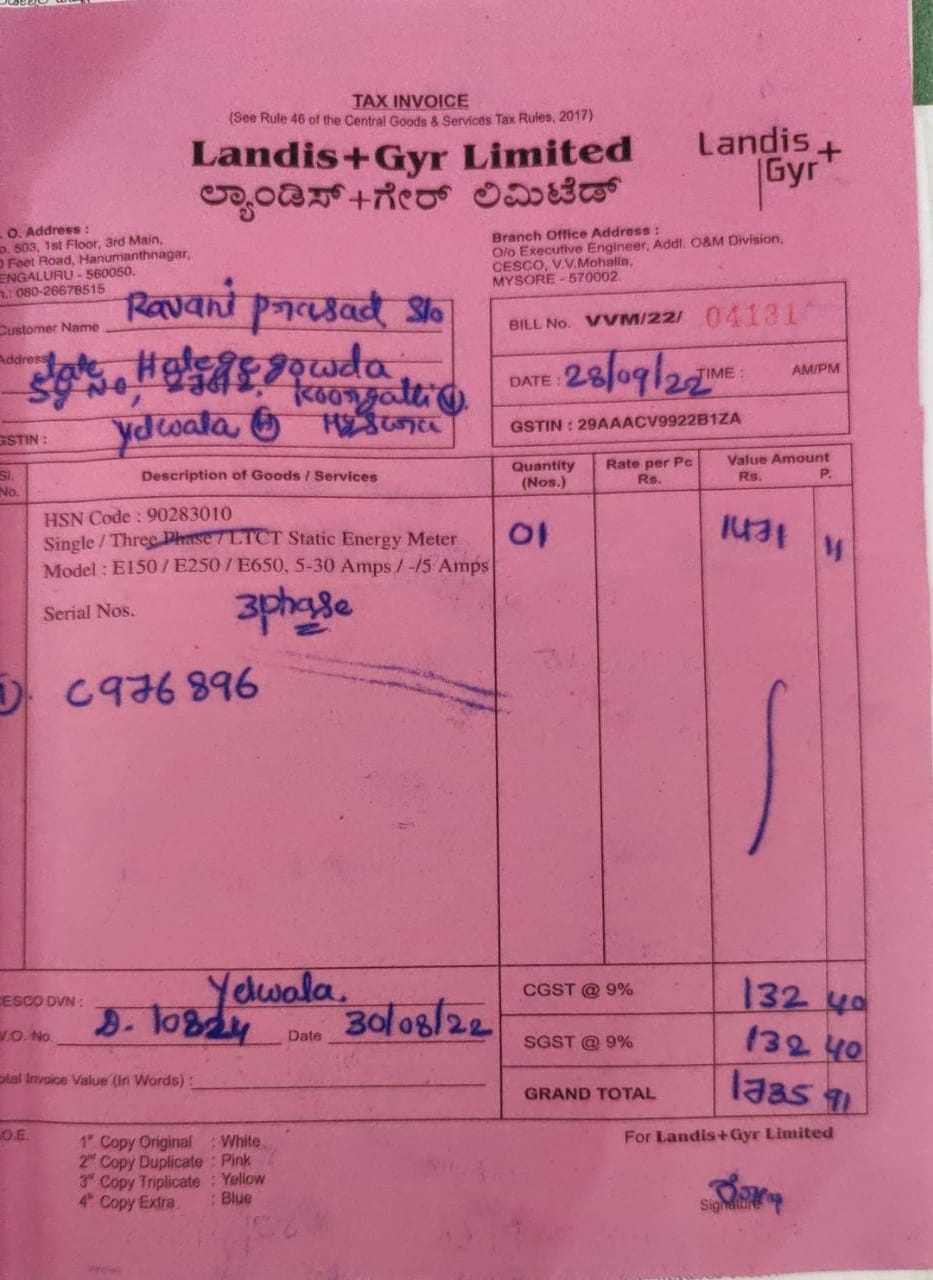 TAX INVOICE
(See Rule 46 of the Central Goods & Services Tax Rules, 2017)
Landis+Gyr Limited
ಲ್ಯಾಂಡಿಸ್+ಗೇರ್ ಲಿಮಿಟೆಡ್
Landis+
Gyr
. O. Address :
o. 503, 1st Floor, 3rd Main,
Feet Road, Hanumanthnagar,
ENGALURU - 560050.
n.: 080-26678515
Branch Office Address :
O/o Executive Engineer, Addl. O&M Division,
CESCO, V.V.Mohalla,
MYSORE - 570002.
Customer Name Ravani prasad S/o
Address late Halegegowda
Sy No, Koorgalli (V).
GSTIN : yelwala (H)
BILL No. VVM/22/ 04131
DATE : 28/09/22 TIME : AM/PM
GSTIN : 29AAACV9922B1ZA
Sl. No. Description of Goods / Services Quantity (Nos.) Rate per Pc Rs. Value Amount Rs. P.
HSN Code : 90283010
Single / Three Phase / LTCT Static Energy Meter 01 1471 11
Model : E150 / E250 / E650, 5-30 Amps / -/5 Amps
Serial Nos. 3phase
1). C976896
CESCO DVN : Yelwala.
W.O. No. D-10824 Date 30/08/22
otal Invoice Value (In Words) :
CGST @ 9% 132 40
SGST @ 9% 132 40
GRAND TOTAL 1735 91
.O.E.
1st Copy Original : White
2nd Copy Duplicate : Pink
3rd Copy Triplicate : Yellow
4th Copy Extra : Blue
For Landis+Gyr Limited
Signature